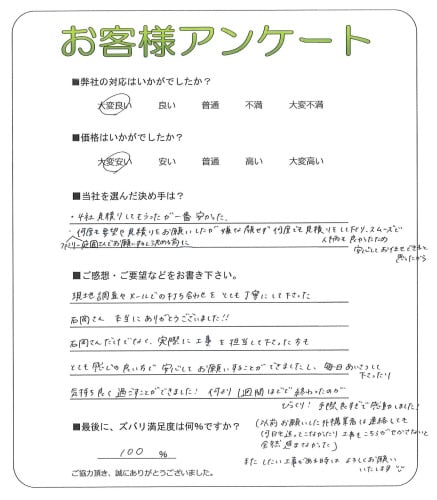 お客様アンケート
■弊社の対応はいかがでしたか？
大変良い 良い 普通 不満 大変不満
■価格はいかがでしたか？
大変安い 安い 普通 高い 大変高い
■当社を選んだ決め手は？
・4社見積りしてもらったが一番安かった。
・何度も要望や見積りをお願いしたが嫌な顔せず何度でも見積りをして下さり、スムーズで
人柄も良かったため
安心しておまかせできると
思ったから
石岡さんでお願いすると決める前に
■ご感想・ご要望などをお書き下さい。
現地調査やメールでの打ち合わせをとても丁寧にして下さった
石岡さん 本当にありがとうございました!!
石岡さんだけでなく、実際に工事を担当して下さった方も
とても感じの良い方で安心してお願いすることができましたし、毎日あいさつして
下さったり
気持ち良く過ごすことができました！ 何より1週間ほどで終わったのが
びっくり！ 手際良すぎで感動しました！
(以前お願いした外構業者は連絡しても
何日も送ってこなかったり工事もこちらがせかさないと
全然進まなかった)
■最後に、ズバリ満足度は何%ですか？
100 %
また したい工事がある時は よろしくお願い
いたします
ご協力頂き、誠にありがとうございました。